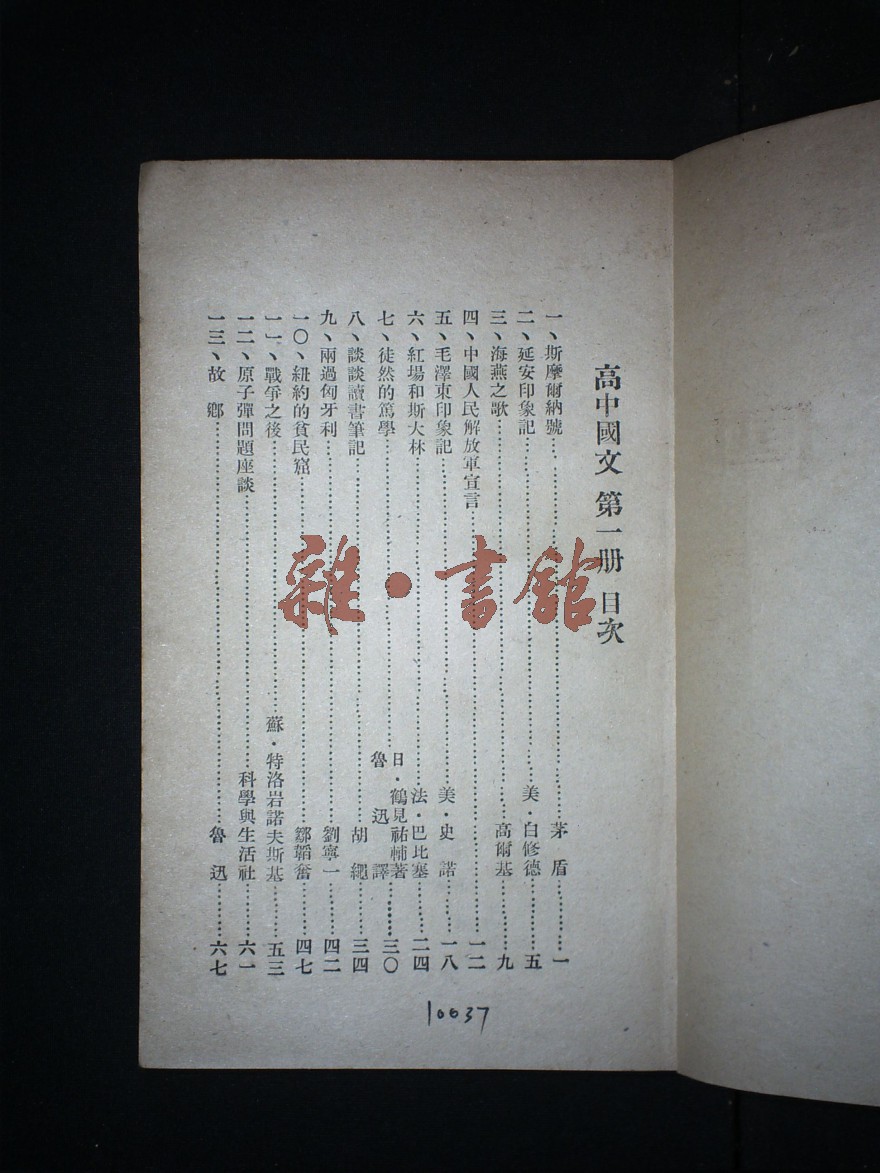 高中國文 第一册 目次
一、斯摩爾納號…………茅盾…………一
二、延安印象記…………美·白修德…………五
三、海燕之歌…………高爾基…………九
四、中國人民解放軍宣言…………一二
五、毛澤東印象記…………美·史諾…………一八
六、紅場和斯大林…………法·巴比塞…………二四
七、徒然的篤學…………日·鶴見祐輔著 魯迅譯…………三〇
八、談談讀書筆記…………胡繩…………三四
九、兩過匈牙利…………劉寧一…………四二
一〇、紐約的貧民窟…………鄒韜奮…………四七
一一、戰爭之後…………蘇·特洛岩諾夫斯基…………五三
一二、原子彈問題座談…………科學與生活社…………六一
一三、故鄉…………魯迅…………六七
10037
雜·書館